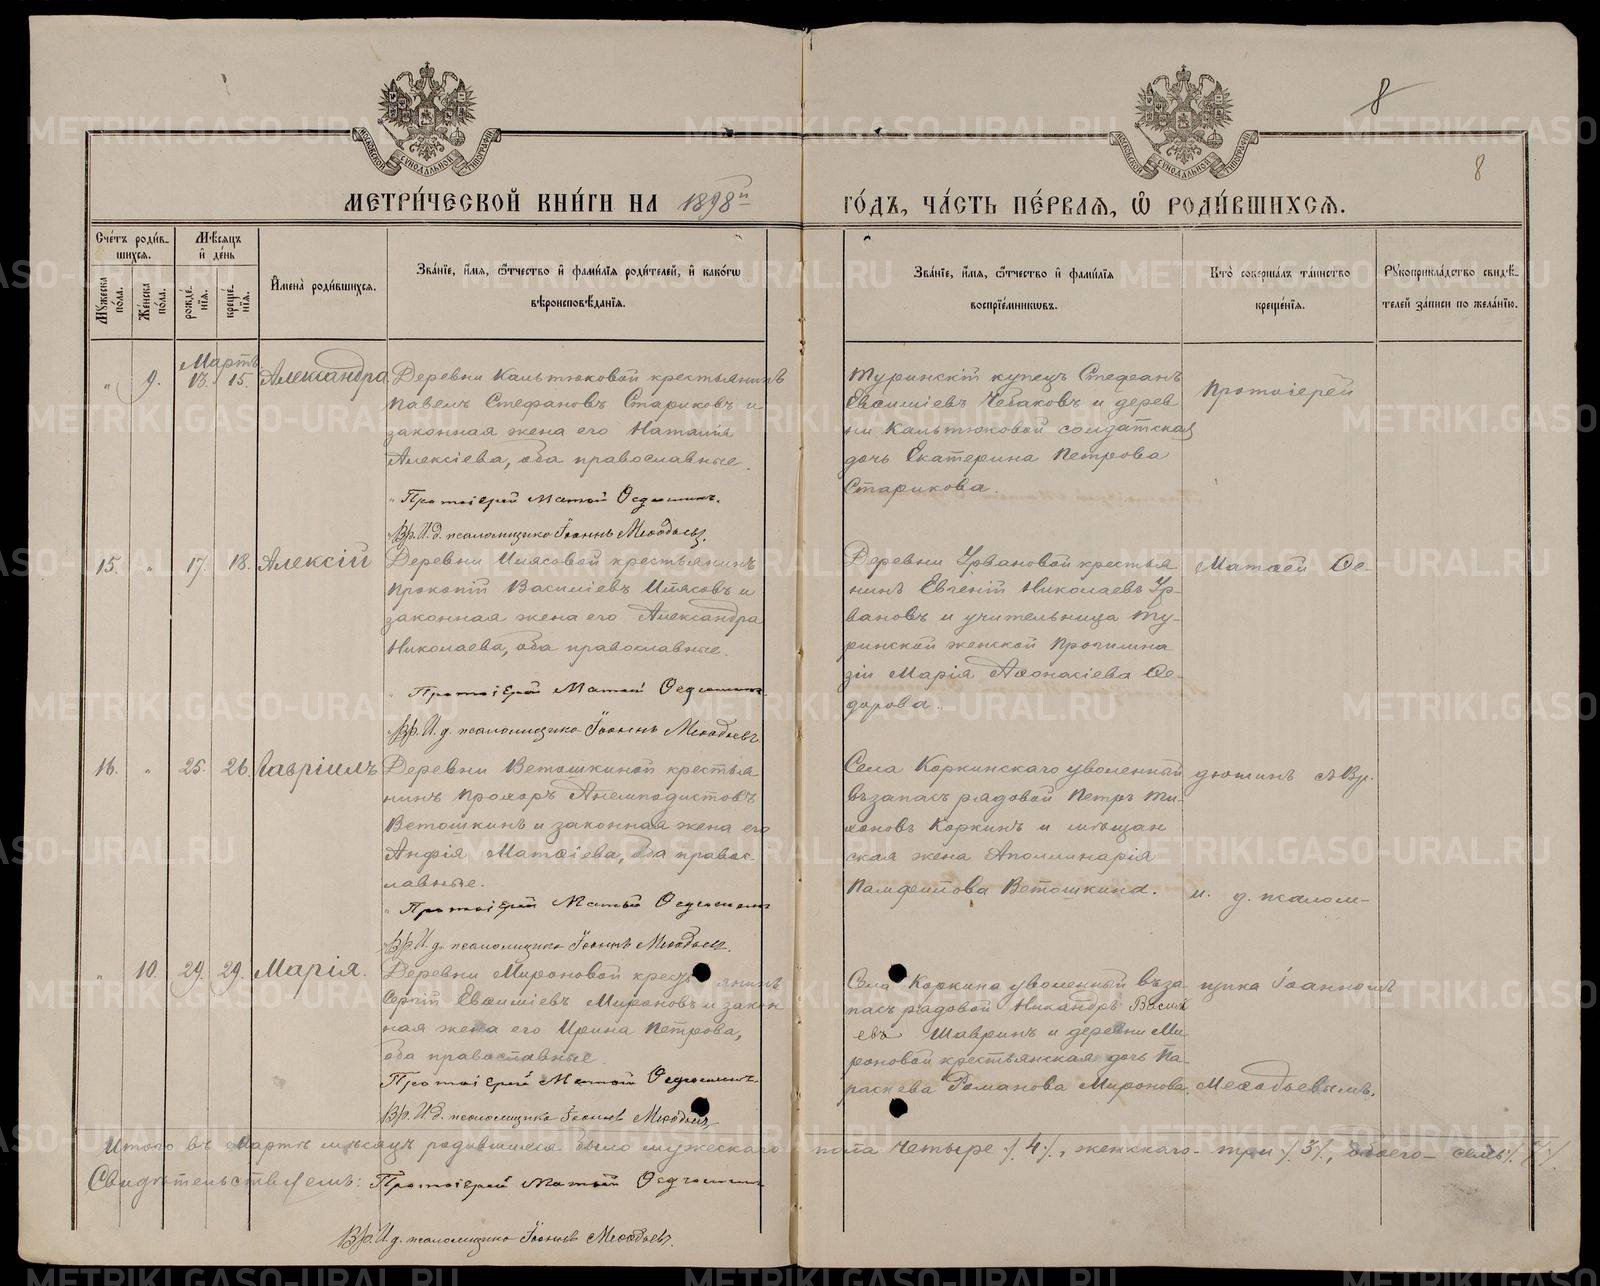 8
8
МОСКОВСКОЙ СѴНОДАЛЬНОЙ ТИПОГРАФІИ
МОСКОВСКОЙ СѴНОДАЛЬНОЙ ТИПОГРАФІИ
МЕТРИ́ЧЕСКОЙ КНИ́ГИ НА 1898й ГО́ДЪ, ЧА́СТЬ ПЕ́РВАЯ, Ѽ РОДИ́ВШИХСЯ.
Сче́тъ роди́в-
шихся.
Му́жеска по́ла.
Же́нска по́ла.
Мѣ́сяцъ и де́нь
рожде́-
нія.
креще́-
нія.
Имена̀ роди́вшихся.
Зва́ніе, и́мя, ѻ́тчество и фами́лія роди́телей, и како́гѡ
вѣроисповѣ́данія.
Зва́ніе, и́мя, ѻ́тчество и фами́лія
воспріе́мникѡвъ.
Кто̀ соверша́лъ та́инство
креще́нія.
Рукоприкла́дство свидѣ́-
телей за́писи по жела́нію.
Мартъ
" 9. 13. 15. Александра
Деревни Кальтюковой крестьянинъ
Павелъ Стефановъ Стариковъ и
законная жена его Наталія
Алексіева, оба православные.
Протоіерей Матѳей Ѳедюшинъ.
Вр. И. д. псаломщика Іоаннъ Меѳодьевъ.
Туринскій купецъ Стефанъ
Евѳиміевъ Чебаковъ и дерев
ни Кальтюковой солдатская
дочь Екатерина Петрова
Старикова.
Протоіерей
15. " 17. 18. Алексій
Деревни Илясовой крестьянинъ
Прокопій Василіевъ Илясовъ и
законная жена его Александра
Николаева, оба православные.
Протоіерей Матѳей Ѳедюшинъ
Вр. И. д. псаломщика Іоаннъ Меѳодьевъ.
Деревни Урвановой крестья
нинъ Евгеній Николаевъ Ур-
вановъ и учительница Ту-
ринской женской Прогимна
зіи Марія Аѳонасіева Ѳе-
дорова.
Матѳей Ѳе-
16. " 25. 26. Гавріилъ
Деревни Ветошкиной крестья
нинъ Прохоръ Анемподистовъ
Ветошкинъ и законная жена его
Анфія Матѳіева, оба правос-
лавные.
" Протоіерей Матѳей Ѳедюшинъ
Вр. И. д. псаломщика Іоаннъ Меѳодьевъ.
Села Коркинскаго уволенный
въ запасъ рядовой Петръ Ти-
хоновъ Коркинъ и мѣщан
ская жена Аполлинарія
Памфилова Ветошкина.
дюшинъ и Вр.
и. д. псалом-
" 10. 29. 29. Марія.
Деревни Мироновой крестьянинъ
Сергій Евѳиміевъ Мироновъ и закон
ная жена его Ирина Петрова,
оба православные.
Протоіерей Матѳей Ѳедюшинъ.
Вр. И. д. псаломщика Іоаннъ Меѳодьевъ.
Села Коркина уволенный въ за
пасъ рядовой Никандръ Васил
евъ Шавринъ и деревни Ми-
роновой крестьянская дочь Па-
раскева Романова Миронова.
щика Іоанномъ
Меѳодьевымъ.
Итого въ Мартѣ мѣсяцѣ родившихся было мужескаго пола четыре ⁒4⁒, женскаго три ⁒3⁒, обоего семь ⁒7⁒
Свидѣтельствуемъ: Протоіерей Матѳей Ѳедюшинъ
Вр. И. д. псаломщика Іоаннъ Меѳодьевъ.
METRIKI.GASO-URAL.RU